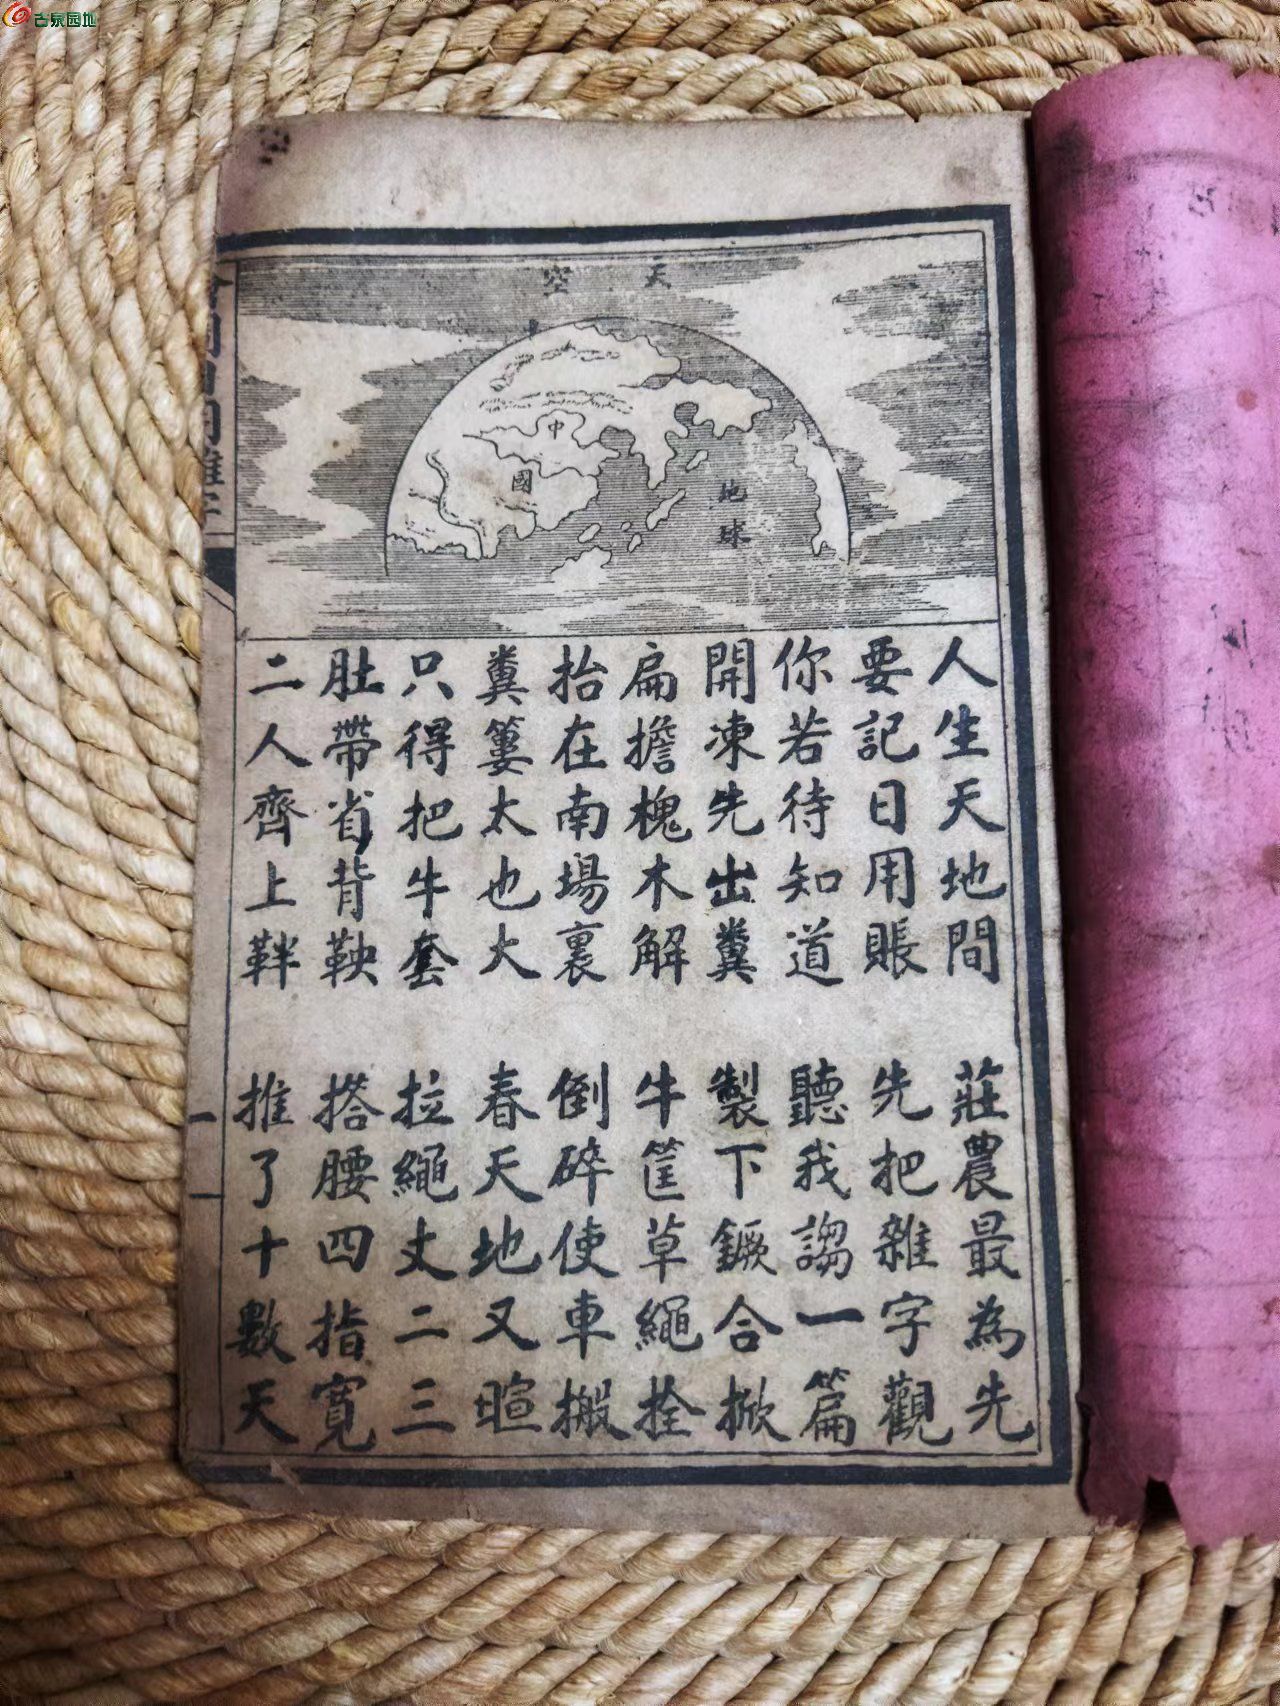 古泉园地
天空
中國
地球
人生天地間 莊農最為先
要記日用賬 先把雜字觀
你若待知道 聽我謅一篇
開凍先出糞 製下鐝合掀
扁擔槐木解 牛筐草繩拴
抬在南場裏 倒碎使車搬
糞簍太也大 春天地又暄
只得把牛套 拉繩丈二三
肚帶省背鞅 搭腰四指寬
二人齊上靽 推了十數天
一